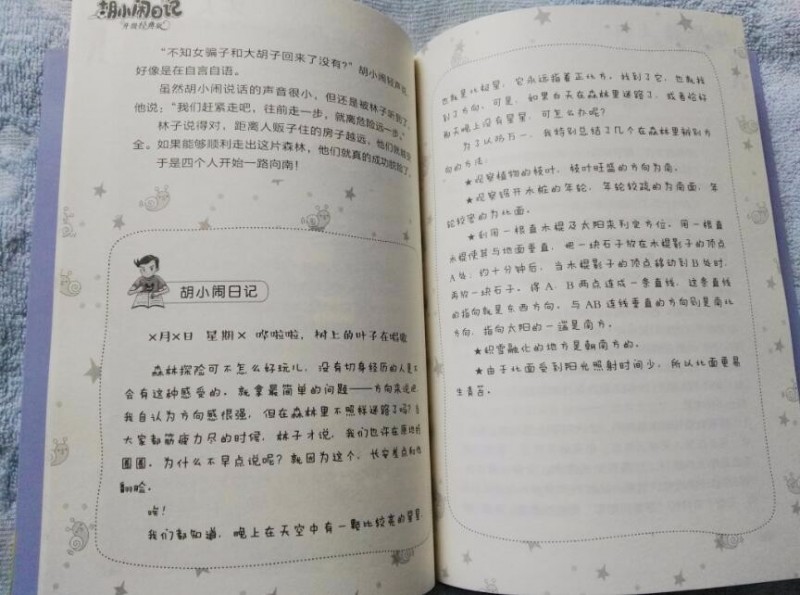 胡小闹日记
升级经典版
“不知女骗子和大胡子回来了没有?”胡小闹轻声说,
好像是在自言自语。
虽然胡小闹说话的声音很小,但还是被林子听到了,
他说:“我们赶紧走吧,往前走一步,就离危险远一步。”
林子说得对,距离人贩子住的房子越远,他们就越安
全。如果能够顺利走出这片森林,他们就真的成功脱险了。
于是四个人开始一路向南!
胡小闹日记
×月×日 星期× 哗啦啦,树上的叶子在唱歌
森林探险可不怎么好玩儿,没有切身经历的人是不
会有这种感受的。就拿最简单的问题——方向来说吧,
我自认为方向感很强,但在森林里不照样迷路了吗?当
大家都筋疲力尽的时候,林子才说,我们也许在原地转
圈圈。为什么不早点说呢?就因为这个,长安差点和他
翻脸。
唉!
我们都知道,晚上在天空中有一颗比较亮的星星,
也就是北极星,它永远指着正北方,找到了它,也就找
到了方向。可是,如果白天在森林里迷路了,或者恰好
那天晚上没有星星,可怎么办呢?
为了以防万一,我特别总结了几个在森林里辨别方
向的方法:
★观察植物的枝叶,枝叶旺盛的方向为南。
★观察锯开木桩的年轮,年轮较疏的为南面,年
轮较密的为北面。
★利用一根直木棍及太阳来判定方位。用一根直
木棍使其与地面垂直,把一块石子放在木棍影子的顶点
A处;约十分钟后,当木棍影子的顶点移动到B处时,
再放一块石子。将A、B两点连成一条直线,这条直线
的指向就是东西方向。与AB连线垂直的方向则是南北
方向,指向太阳的一端是南方。
★积雪融化的地方是朝南方的。
★由于北面受到阳光照射时间少,所以北面更易
生青苔。